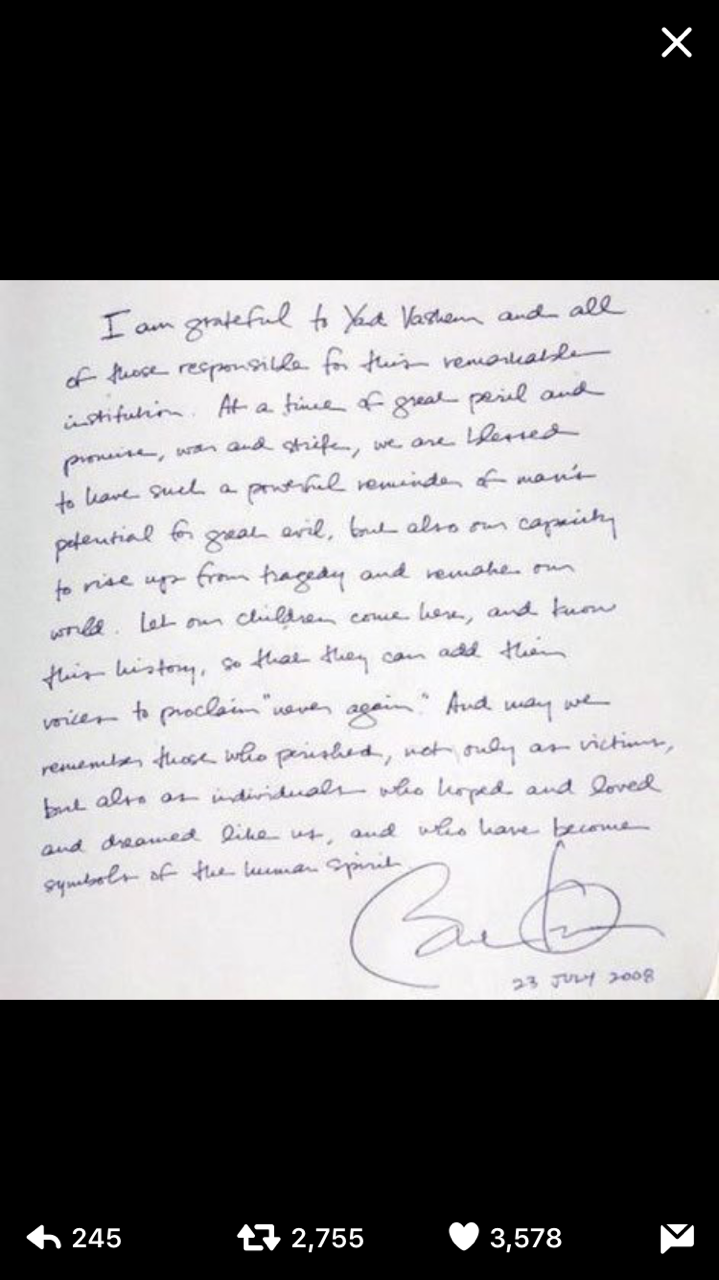 I am grateful to Yad Vashem and all
of those responsible for this remarkable
institution. At a time of great peril and
promise, war and strife, we are blessed
to have such a powerful reminder of man's
potential for great evil, but also our capacity
to rise up from tragedy and remake our
world. Let our children come here, and know
this history, so that they can add their
voices to proclaim "never again." And may we
remember those who perished, not only as victims,
but also as individuals who hoped and loved
and dreamed like us, and who have become
symbols of the human spirit.
23 JULY 2008
245 2,755 3,578